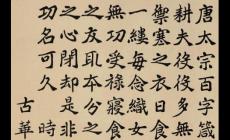 唐太宗百字箴
耕夫役役多無
禦寒之衣日食
一縷每念織女
無功受祿寢食
之友取本分之
之心閉却是非
功名可久 時
古華